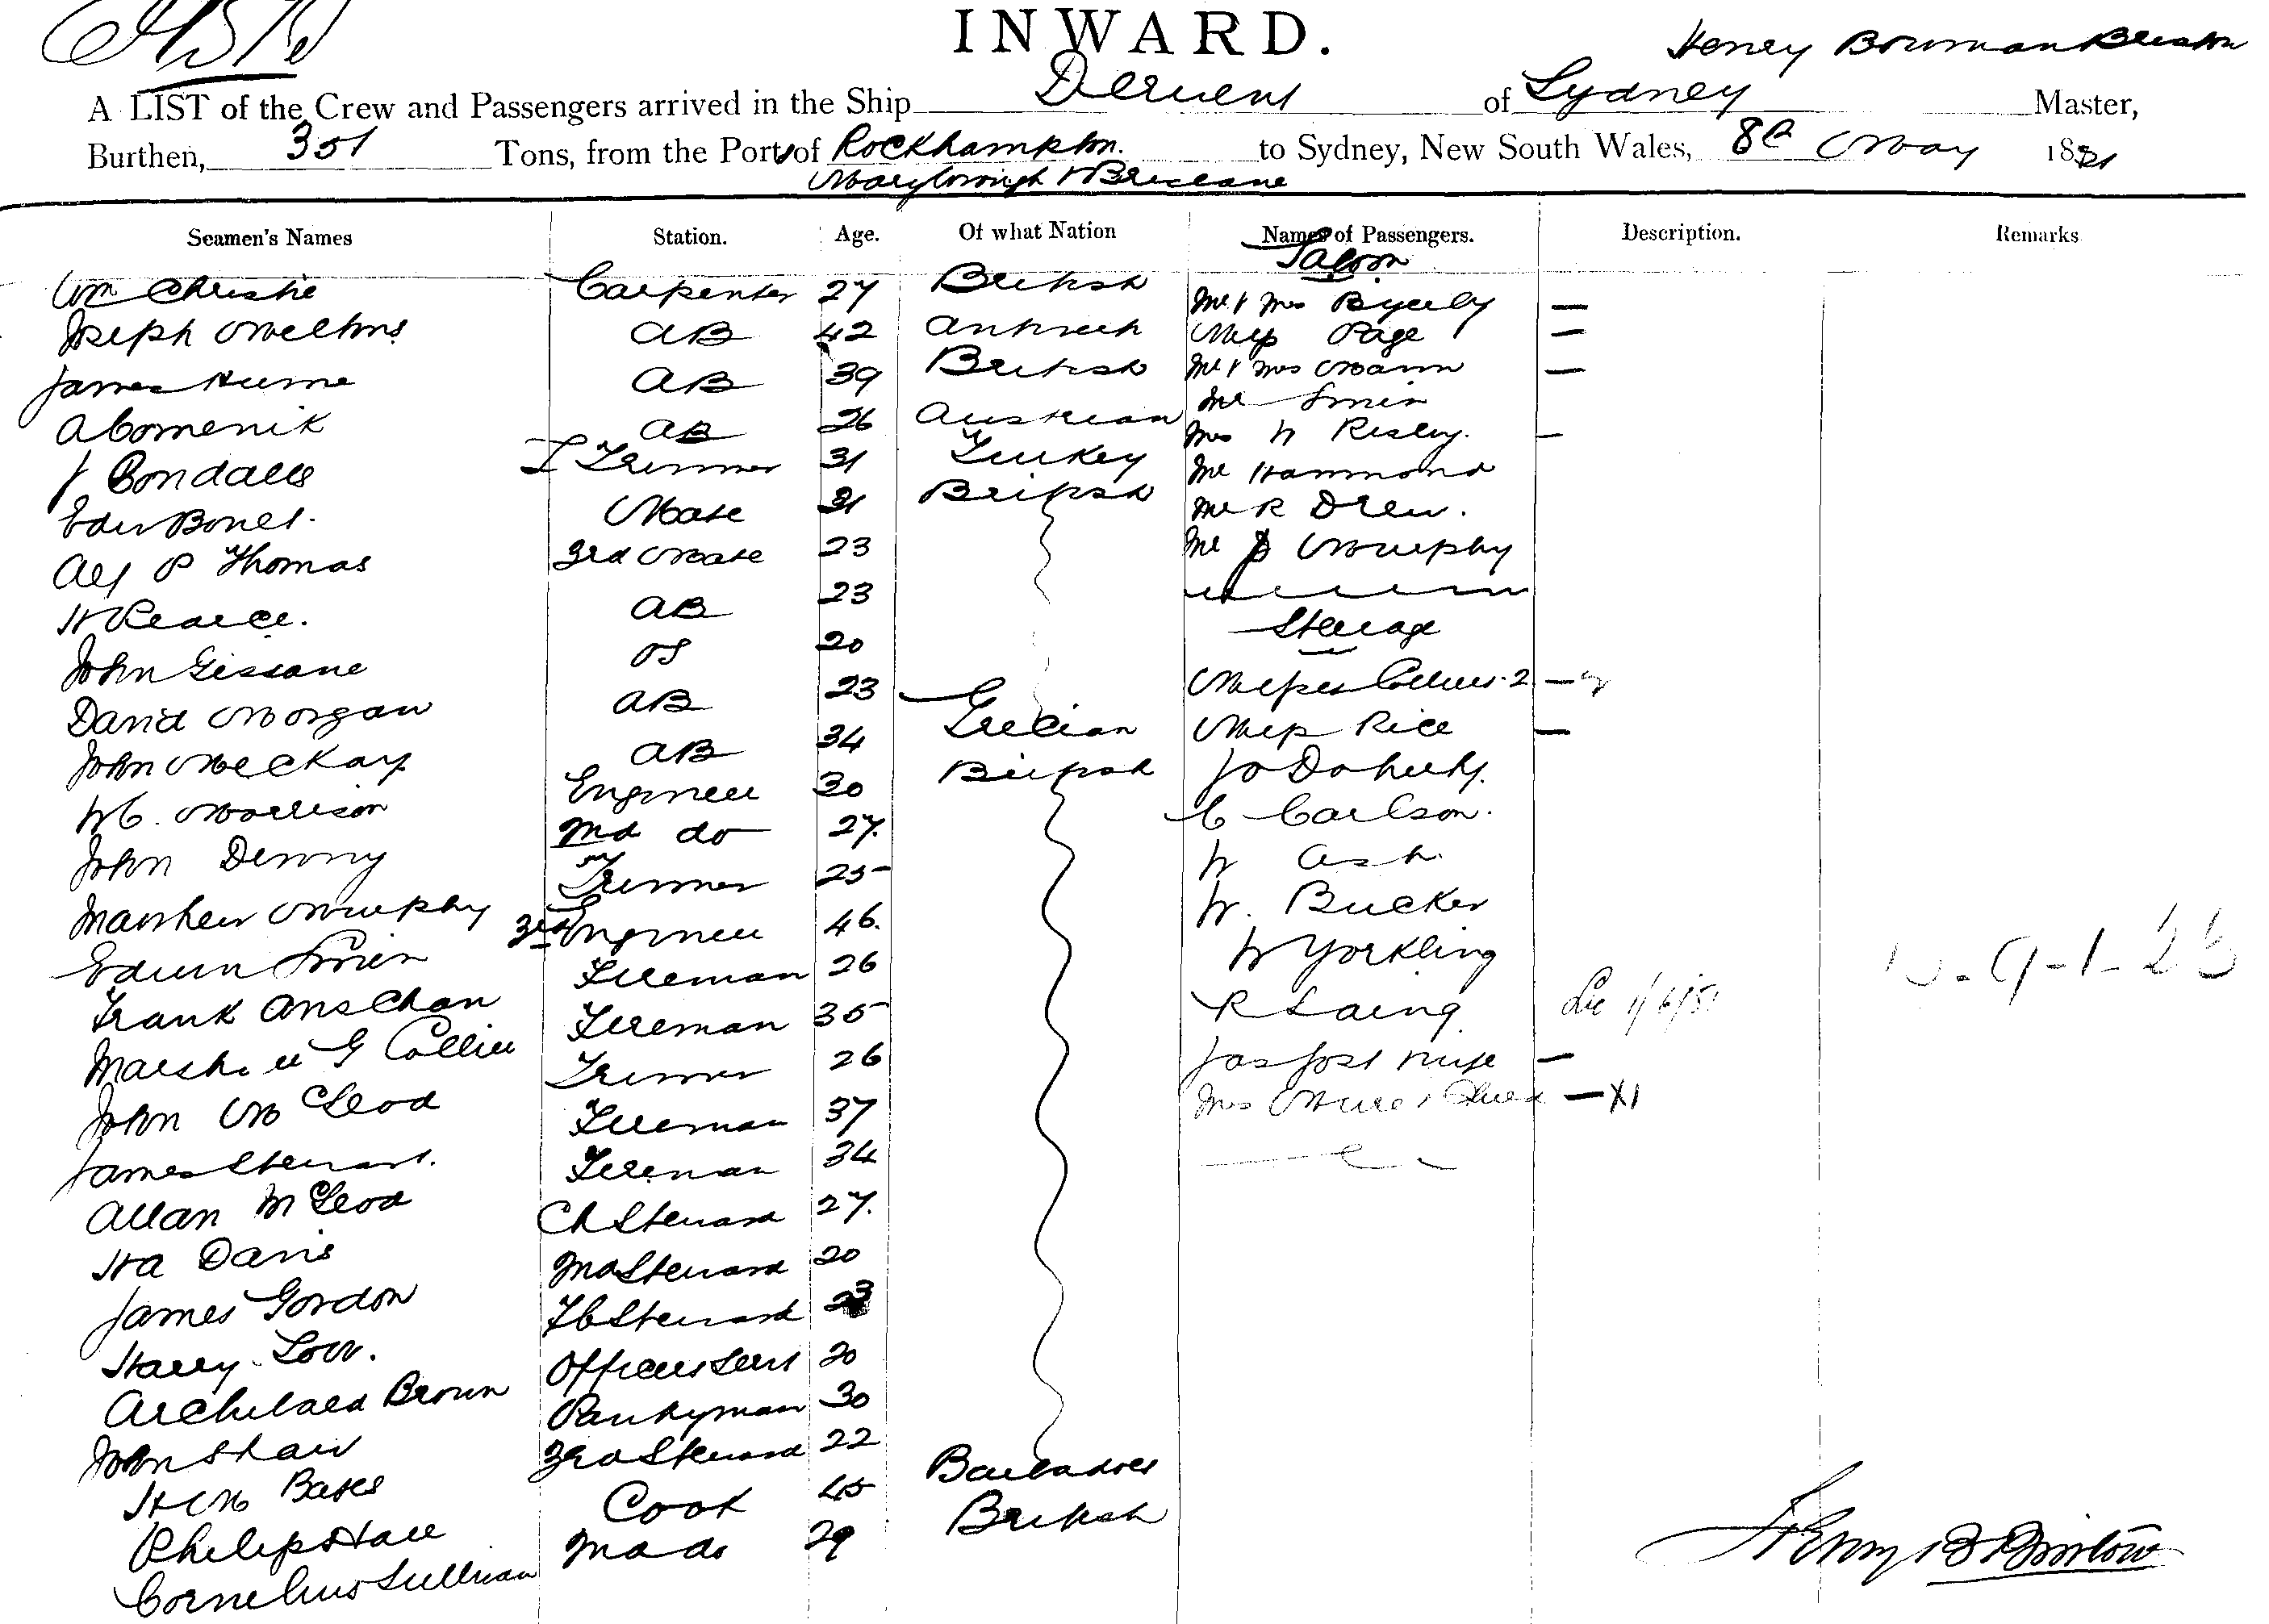 INWARD.
Henry Bowman Bristow
A LIST of the Crew and Passengers arrived in the Ship Derwent of Sydney Master,
Burthen, 351 Tons, from the Ports of Rockhampton to Sydney, New South Wales, 8th May 18
Maryborough & Brisbane
Seamen's Names Station. Age. Of what Nation Names of Passengers. Description. Remarks
Saloon
Wm Christie Carpenter 27 British Mr & Mrs Byerly —
Joseph AB 42 Miss Page —
James Hume AB 39 British Mr & Mrs Mann —
A Comenik AB 26 Austrian Mr Smith
J Trimmer 31 Turkey Mrs W Risley. —
Mate 31 British Mr Hammond
Alf P Thomas 3rd Mate 23 Mr R Drew.
H Pearce. AB 23 Mr Murphy
John Gissane OS 20 Steerage
David Morgan AB 23 Misses 2 —
John McKay AB 34 Grecian Miss Rice —
W C. Morrison Engineer 30 British Jo Doherty.
John Denny 2nd do 27. C Carlson.
Matthew Murphy Trimmer 25 W Ash.
Edwin Smith 3rd Engineer 46. W. Bucker
Frank Fireman 26 W Yorkling
G Collier Fireman 35 R Laing
John McLeod Trimmer 26 Jas Jost wife —
James Stewart. Fireman 37 Mrs —X1
Allan McLeod Fireman 34
H A Davis Ch Steward 27.
James Gordon 2nd Steward 20
Harry Low. F C Steward 23
Archibald Brown Officers Servt 20
John Shaw Pantryman 30
H M Bates 3rd Steward 22
Philip Hall Cook 45 Barbadoes
Cornelius Sullivan 2nd do 29 British
Henry B Bristow